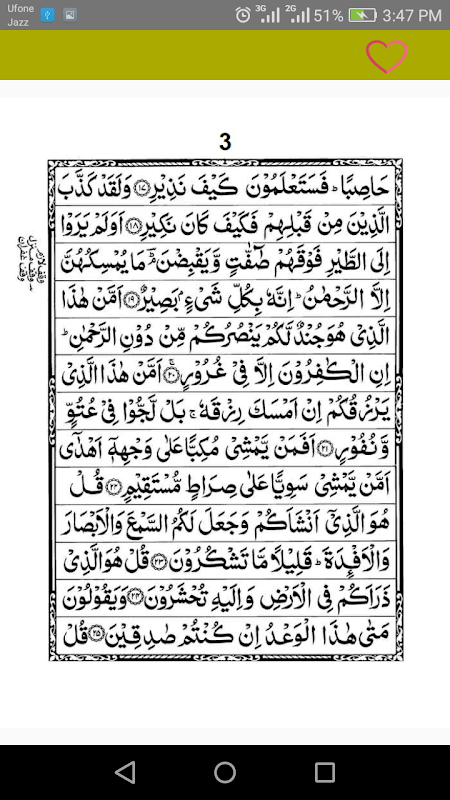 Ufone
Jazz
3G 2G 51% 3:47 PM
3
حَاصِبًا ؕ فَسَتَعْلَمُوْنَ كَيْفَ نَذِيْرِ ﴿۱۷﴾ وَلَقَدْ كَذَّبَ
الَّذِيْنَ مِنْ قَبْلِهِمْ فَكَيْفَ كَانَ نَكِيْرِ ﴿۱۸﴾ اَوَلَمْ يَرَوْا
اِلَى الطَّيْرِ فَوْقَهُمْ صٰٓفّٰتٍ وَّيَقْبِضْنَ ؔۘ مَا يُمْسِكُهُنَّ
اِلَّا الرَّحْمٰنُ ؕ اِنَّهٗ بِكُلِّ شَیْءٍۭ بَصِيْرٌ ﴿۱۹﴾ اَمَّنْ هٰذَا
الَّذِیْ هُوَ جُنْدٌ لَّكُمْ يَنْصُرُكُمْ مِّنْ دُوْنِ الرَّحْمٰنِ ؕ
اِنِ الْكٰفِرُوْنَ اِلَّا فِیْ غُرُوْرٍ ﴿۲۰﴾ اَمَّنْ هٰذَا الَّذِیْ
يَرْزُقُكُمْ اِنْ اَمْسَكَ رِزْقَهٗ ۚ بَلْ لَّجُّوْا فِیْ عُتُوٍّ
وَّنُفُوْرٍ ﴿۲۱﴾ اَفَمَنْ يَّمْشِیْ مُكِبًّا عَلٰى وَجْهِهٖۤ اَهْدٰۤى
اَمَّنْ يَّمْشِیْ سَوِيًّا عَلٰى صِرَاطٍ مُّسْتَقِيْمٍ ﴿۲۲﴾ قُلْ
هُوَ الَّذِیْۤ اَنْشَاَكُمْ وَجَعَلَ لَكُمُ السَّمْعَ وَالْاَبْصَارَ
وَالْاَفْـِٕدَةَ ؕ قَلِيْلًا مَّا تَشْكُرُوْنَ ﴿۲۳﴾ قُلْ هُوَ الَّذِیْ
ذَرَاَكُمْ فِی الْاَرْضِ وَاِلَيْهِ تُحْشَرُوْنَ ﴿۲۴﴾ وَيَقُوْلُوْنَ
مَتٰى هٰذَا الْوَعْدُ اِنْ كُنْتُمْ صٰدِقِيْنَ ﴿۲۵﴾ قُلْ